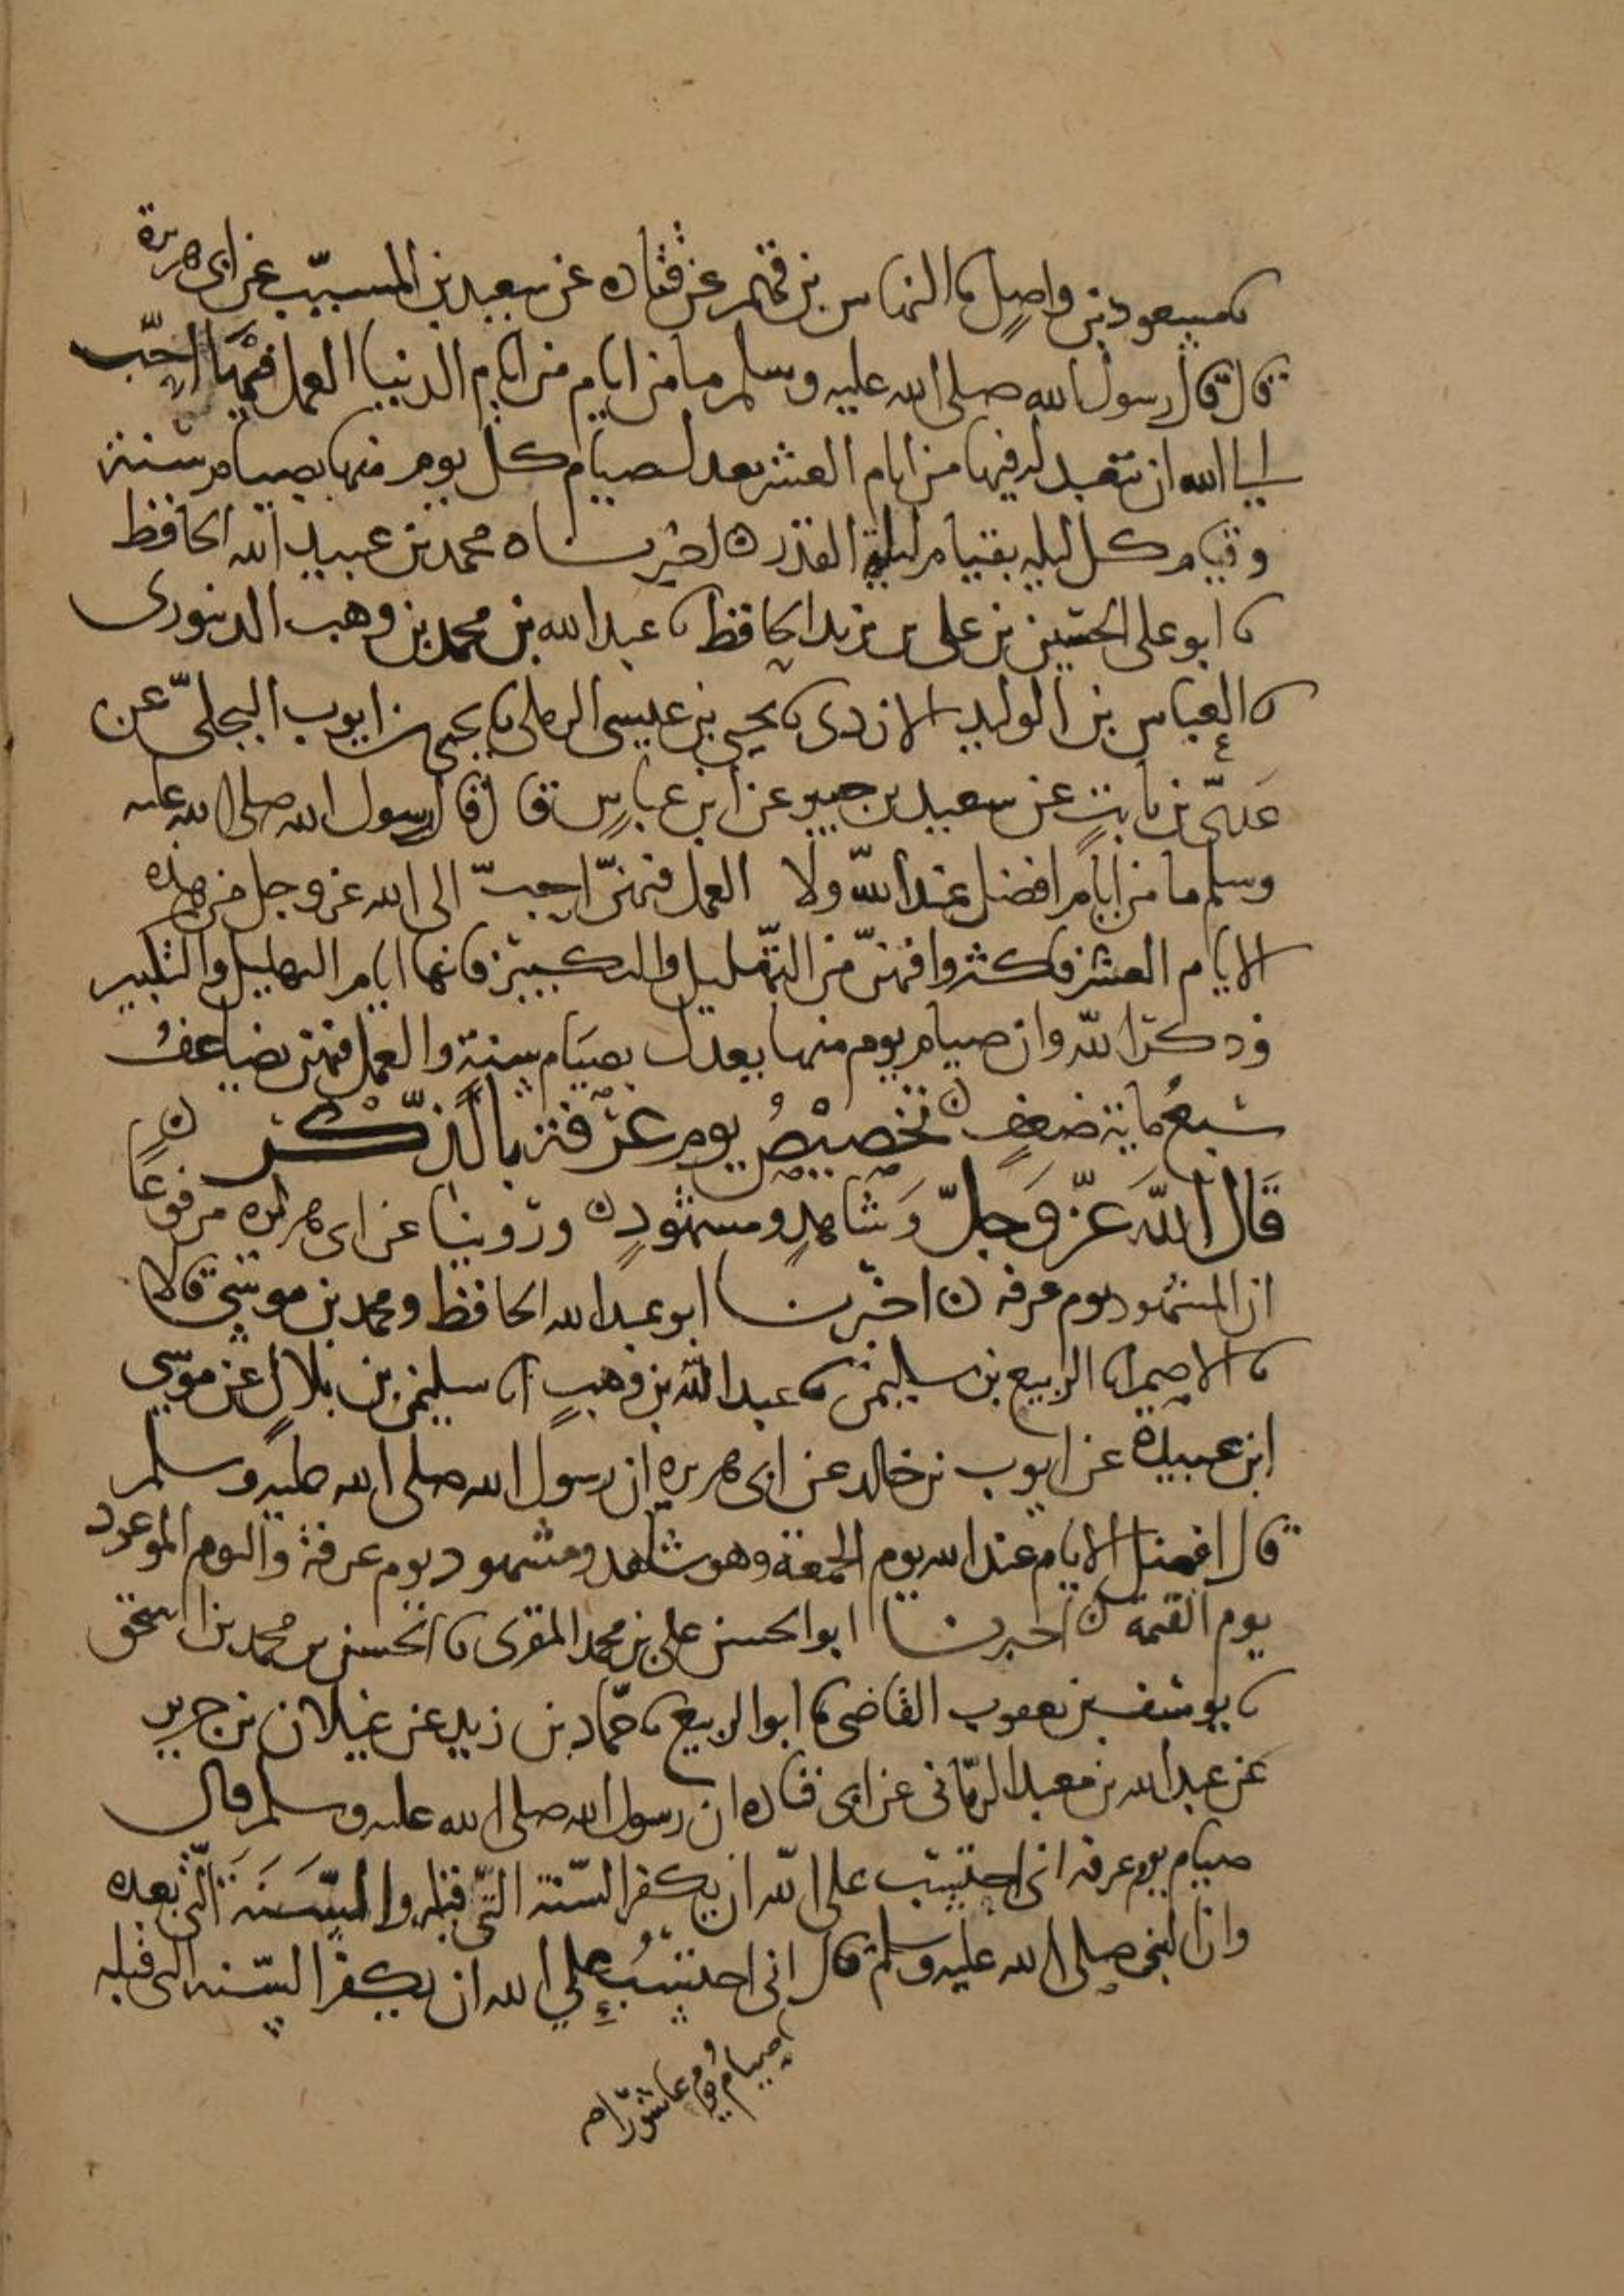 نا مسعود بن واصل نا النهاس بن قهم عن قتاده عن سعيد بن المسيب عن ابى هريرة
قال قال رسول الله صلى الله عليه وسلم ما من ايام من ايام الدنيا العمل فيها احب
الى الله ان يتعبد له فيها من ايام العشر يعدل صيام كل يوم منها بصيام سنة
وقيام كل ليله بقيام ليلة القدر ه اخبرناه محمد بن عبيد الله الحافظ
نا ابو على الحسين بن على بن يزيد الحافظ نا عبد الله بن محمد بن وهب الدينورى
نا العباس بن الوليد الازدى نا يحيى بن عيسى الرملى نا يحيى بن ايوب البجلى عن
عدى بن ثابت عن سعيد بن جبير عن ابن عباس قال قال رسول الله صلى الله عليه
وسلم ما من ايام افضل عند الله ولا العمل فيهن احب الى الله عز وجل من هذه
الايام العشر فكثروا فيهن من التهليل والتكبير فانها ايام التهليل والتكبير
وذكر الله وان صيام يوم منها يعدل بصيام سنة والعمل فيهن يضاعف
سبع ماية ضعف ن تخصيص يوم عرفة بالذكر ن
قال الله عز وجل وشاهد ومشهود ن وروينا عن ابى هريره مرفوعا
ان المشهود يوم عرفه ن اخبرنا ابو عبد الله الحافظ ومحمد بن موسى قالا
نا الاصم انا الربيع بن سليمن نا عبد الله بن وهب انا سليمن بن بلال عن موسى
ابن عبيدة عن ايوب بن خالد عن ابى هريره ان رسول الله صلى الله عليه وسلم
قال افضل الايام عند الله يوم الجمعة وهو شاهد ومشهود يوم عرفة واليوم الموعود
يوم القيمة ن اخبرنا ابو الحسن على بن محمد المقرى نا الحسن بن محمد بن اسحق
نا يوسف بن يعقوب القاضى نا ابو الربيع نا حماد بن زيد عن غيلان بن جرير
عن عبد الله بن معبد الزمانى عن ابى قتاده ان رسول الله صلى الله عليه وسلم قال
صيام يوم عرفه انى احتسب على الله ان يكفر السنة التى قبله والسنة التى بعده
وان النبى صلى الله عليه وسلم قال انى احتسب على الله ان يكفر السنه التى قبله
صيام يوم عاشورا